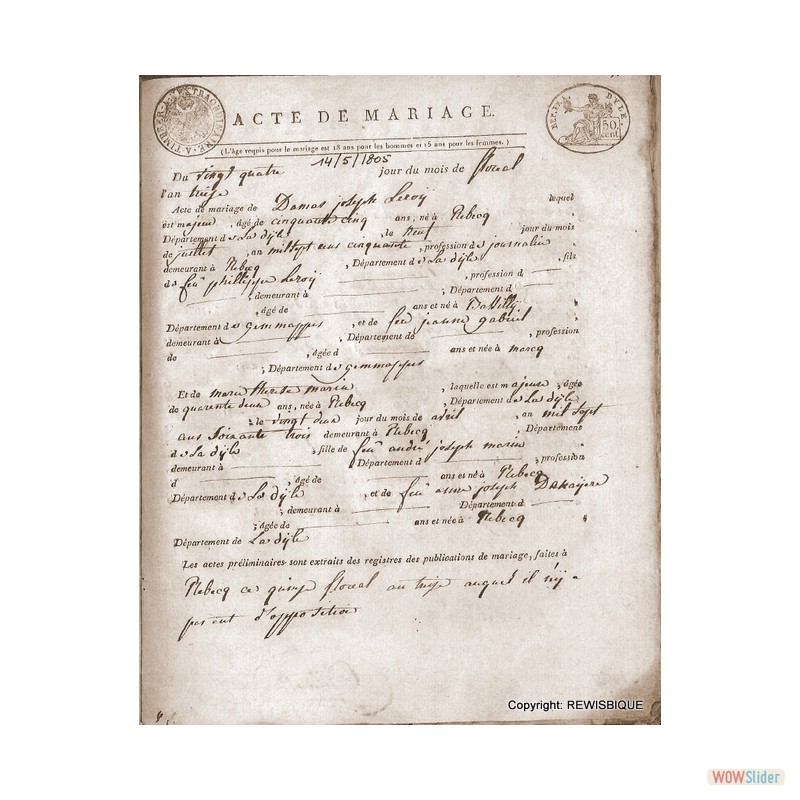 TIMBER-A-L'EXTRAORDINAIRE
DEP. DE LA DYLE
50 cent
ACTE DE MARIAGE.
(L'âge requis pour le mariage est 18 ans pour les hommes et 15 ans pour les femmes.)
14/5/1805
Du vingt quatre jour du mois de floreal
l'an treize
Acte de mariage de Damas joseph Leroÿ lequel
est majeur, âgé de cinquante cinq ans, né à Rebecq
Département de La dÿle, le neuf jour du mois
de juillet, an mil sept cens cinquante, profession de journalier
demeurant à Rebecq, Département de La dÿle, fils
de feu philippe Leroÿ, profession d
, demeurant à, Département d
, âgé de ans et né à
Département de gemmappes, et de feu jeanne gabriel
demeurant à, Département de, profession
de, âgée d ans et née à marcq
, Département de gemmappes
Et de marie therese marin, laquelle est majeure, âgée
de quarente deux ans, née à Rebecq, Département de La dÿle
, le vingt deux jour du mois de avril, an mil sept
cens soixante trois demeurant à Rebecq, Département
de La dÿle, fille de feu andré joseph marin
demeurant à, Département d, profession
d, âgé de ans et né à Rebecq
Département de La dÿle, et de feu anne joseph
, demeurant à, Département d
, âgée de ans et née à Rebecq
Département de La dÿle
Les actes préliminaires sont extraits des registres des publications de mariage, faites à
Rebecq ce quinze floreal an treize auquel il n'ÿ a
pas eut d'opposition
Copyright: REWISBIQUE
WOWSlider